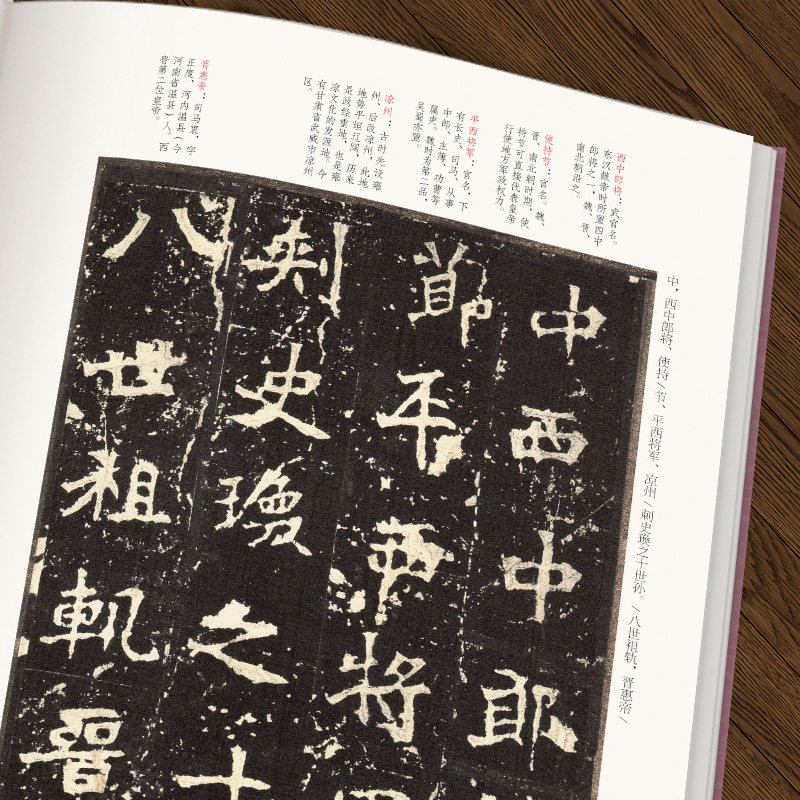 中，西中郎将、使持／节、平西将军、凉州／刺史瓊之十世孙。／八世祖轨，晋惠帝／
西中郎将：武官名。
东汉献帝时所置四中
郎将之一，魏、晋、
南北朝沿之。
使持节：官名。魏、
晋、南北朝时期，使
持节可直接代表皇帝
行使地方军政权力。
平西将军：官名，下
有长史、司马、从事
中郎、主簿、功曹等
属吏。魏时为第二品，
吴蜀亦置。
凉州：古时先设雍
州，后改凉州，此地
地势平坦辽阔，历来
是政经重地，也是雍
凉文化的发源地。今
有甘肃省武威市凉州
区。
晋惠帝：司马衷，字
正度，河内温县（今
河南省温县）人。西
晋第二位皇帝。
中西中郎
节平西将
刺史瓊之十
八世祖軌晉